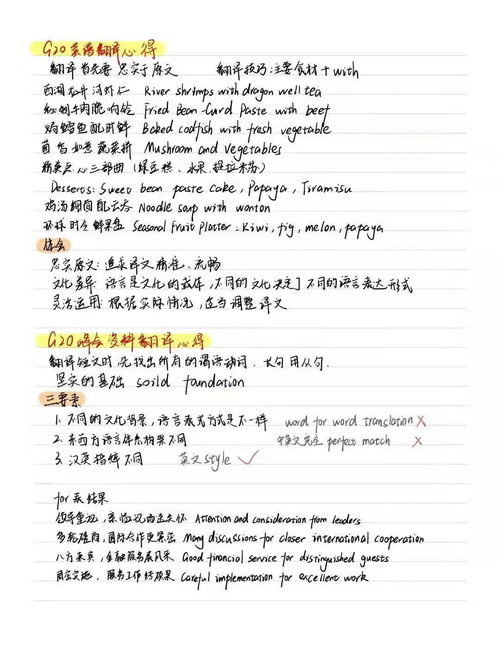 G20菜谱翻译心得
翻译首先要忠实于原文 翻译技巧:主要食材+with
西湖龙井浸虾仁 River shrimps with dragon well tea
秘制牛肉脆响铃 Fried Bean-Curd Paste with beef
鳕鱼配时鲜 Baked codfish with fresh vegetable
菌香如意蔬菜拼 Mushroom and vegetables
精美点心三部曲(绿豆糕、水果、提拉米苏)
Desserts: Sweet bean paste cake, Papaya, Tiramisu
鸡汤 配云吞 Noodle soup with wonton
环球时令鲜果盘 Seasonal Fruit Platter: Kiwi, fig, melon, papaya
体会
忠实原文: 追求译文精准、流畅
文化差异: 语言是文化的载体,不同的文化决定了不同的语言表达形式
灵活运用: 根据实际情况,适当调整译文
G20峰会资料翻译心得
翻译短文时,先找出所有的谓语动词. 长句用从句.
坚实的基础 soild foundation
三要素
1. 不同的文化背景,语言表式方式是不一样 word for word translation ×
2. 东西方语言体系构架不同 中英文完全 perfect match ×
3. 汉英措辞不同 英文style ✓
for 表结果
领导重视,亲临视察送关怀 Attention and consideration from leaders
多轮磋商,国际合作更紧密 Many discussions for closer international cooperation
八方来宾,金融服务展风采 Good financial service for distinguished guests
周密实施,服务工作结硕果 Careful implementation for excellent work